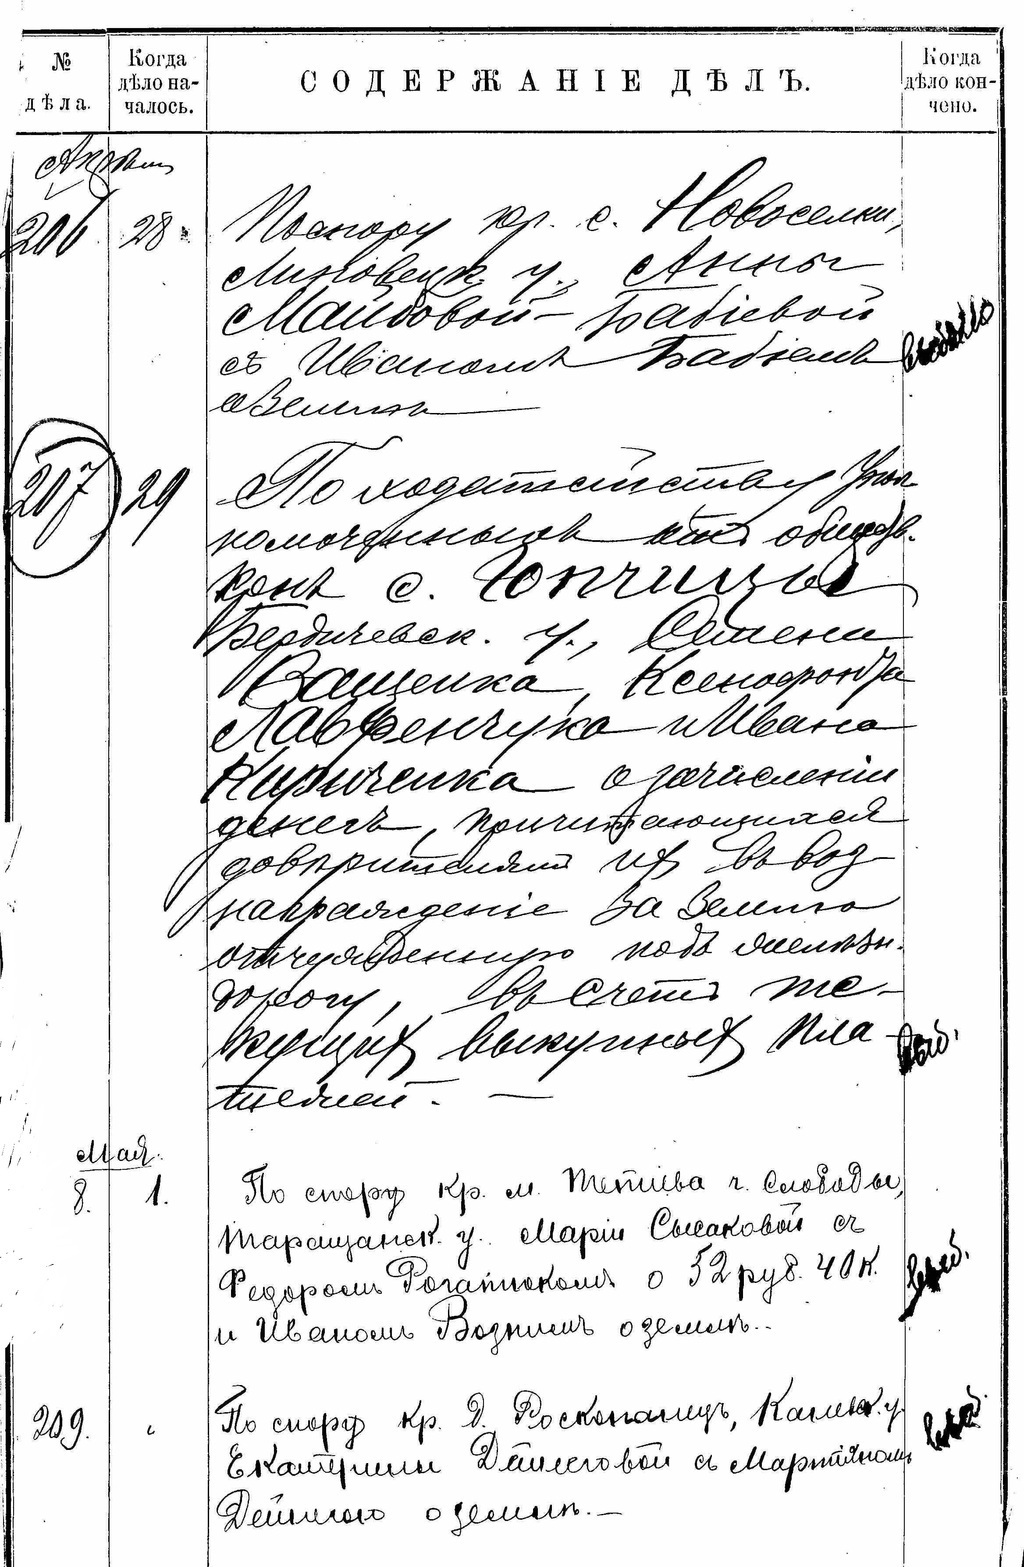 №
дѣла.
Когда
дѣло на-
чалось.
СОДЕРЖАНІЕ ДѢЛЪ.
Когда
дѣло кон-
чено.
206
28
По спору кр. с. Новоселки,
Липовецк. у., Анны
Майбовой-Бабіевой
съ Иваномъ Бабіемъ
о землѣ
207
29
По ходатайству упол-
номоченныхъ отъ обществ.
крест. с. Гопчицы
Бердичевск. у., Семена
Ващенка, Ксенофонта
Лавренчука и Ивана
Кириченка о зачисленіи
денегъ, причитающихся
довѣрителямъ ихъ въ воз-
награжденіе за землю
отчужденную подъ желѣзн.
дорогу, въ счетъ те-
кущихъ выкупныхъ пла-
тежей. —
Мая
8.
1.
По спору кр. м. Тетіева ч. Слободы,
Таращанск. у. Маріи Сысаковой съ
Федоромъ Рогатюкомъ о 52 руб. 40 к.
и Иваномъ Возпимъ о землѣ.
209.
По спору кр. д. Росконанецъ, Каневск. у.
Екатерины Дейнеговой съ Мартіяномъ
Дейнегою о землѣ. —